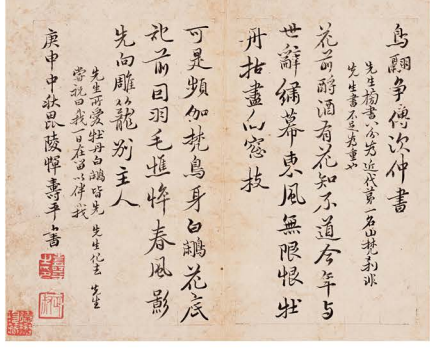 鳥翮爭傳次仲書
先生書八分先近代第一名山梵刹非
先生書不足為重
花前酹酒有花知不道今年与
世辭繡幕東風無限恨牡
丹拈盡窓枝
可是頻伽梵鳥身白鷴花底
訴前因羽毛憔悴春風影
先向雕籠別主人
先生所愛牡丹白鷴皆先 先生化去 先生
嘗祝曰我一日在當以伴我
庚申中秋毘陵惲壽平書